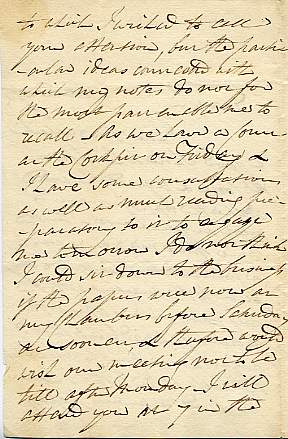 to which I wished to call
your attention, but the partic-
-ular ideas connected with
which my notes do not for
the most part enable me to
recall. As we have a
at the Cockpit on Friday &
I have some consultations
as well as much reading pre-
-paratory to it to engage
me tomorrow I do not think
I could sit down to the business
if the papers were now at
my Chambers before Saturday
at soonest, & therefore would
wish our meeting not to be
till after Monday. I will
attend you at 7 in the